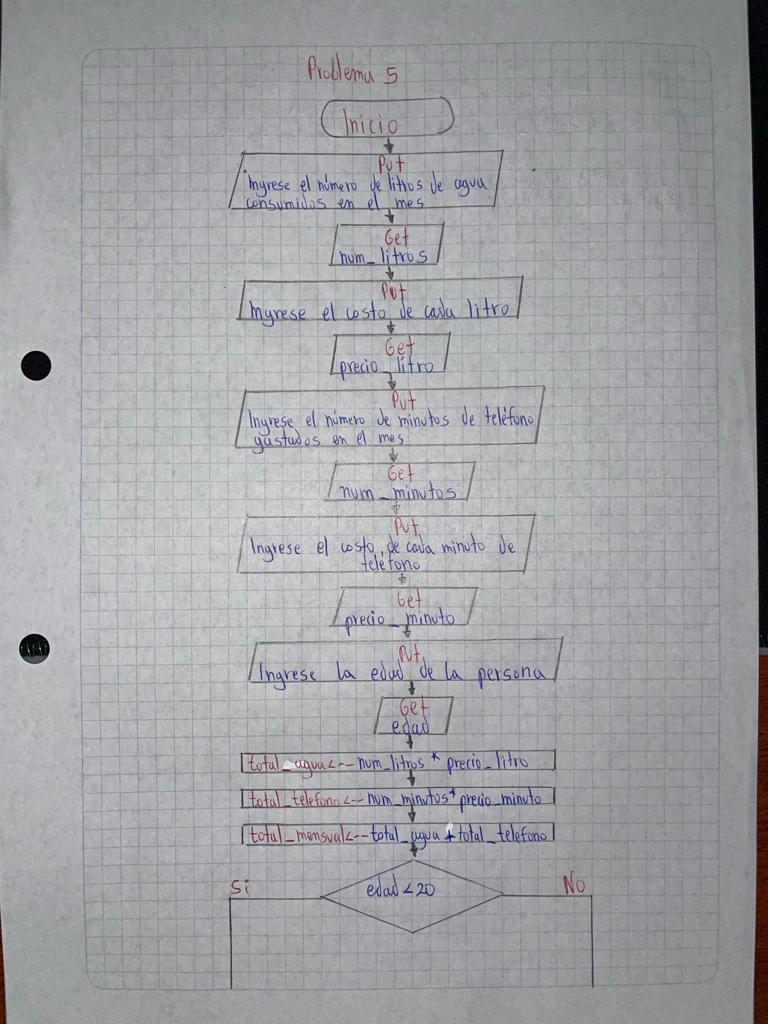 Problema 5
Inicio
Put
Ingrese el número de litros de agua
consumidos en el mes
Get
num_litros
Put
Ingrese el costo de cada litro
Get
precio_litro
Put
Ingrese el número de minutos de teléfono
gastados en el mes
Get
num_minutos
Put
Ingrese el costo de cada minuto de
teléfono
Get
precio_minuto
Put
Ingrese la edad de la persona
Get
edad
total_agua<--num_litros * precio_litro
total_telefono<--num_minutos*precio_minuto
total_mensual<--total_agua + total_telefono
Si
edad<20
No